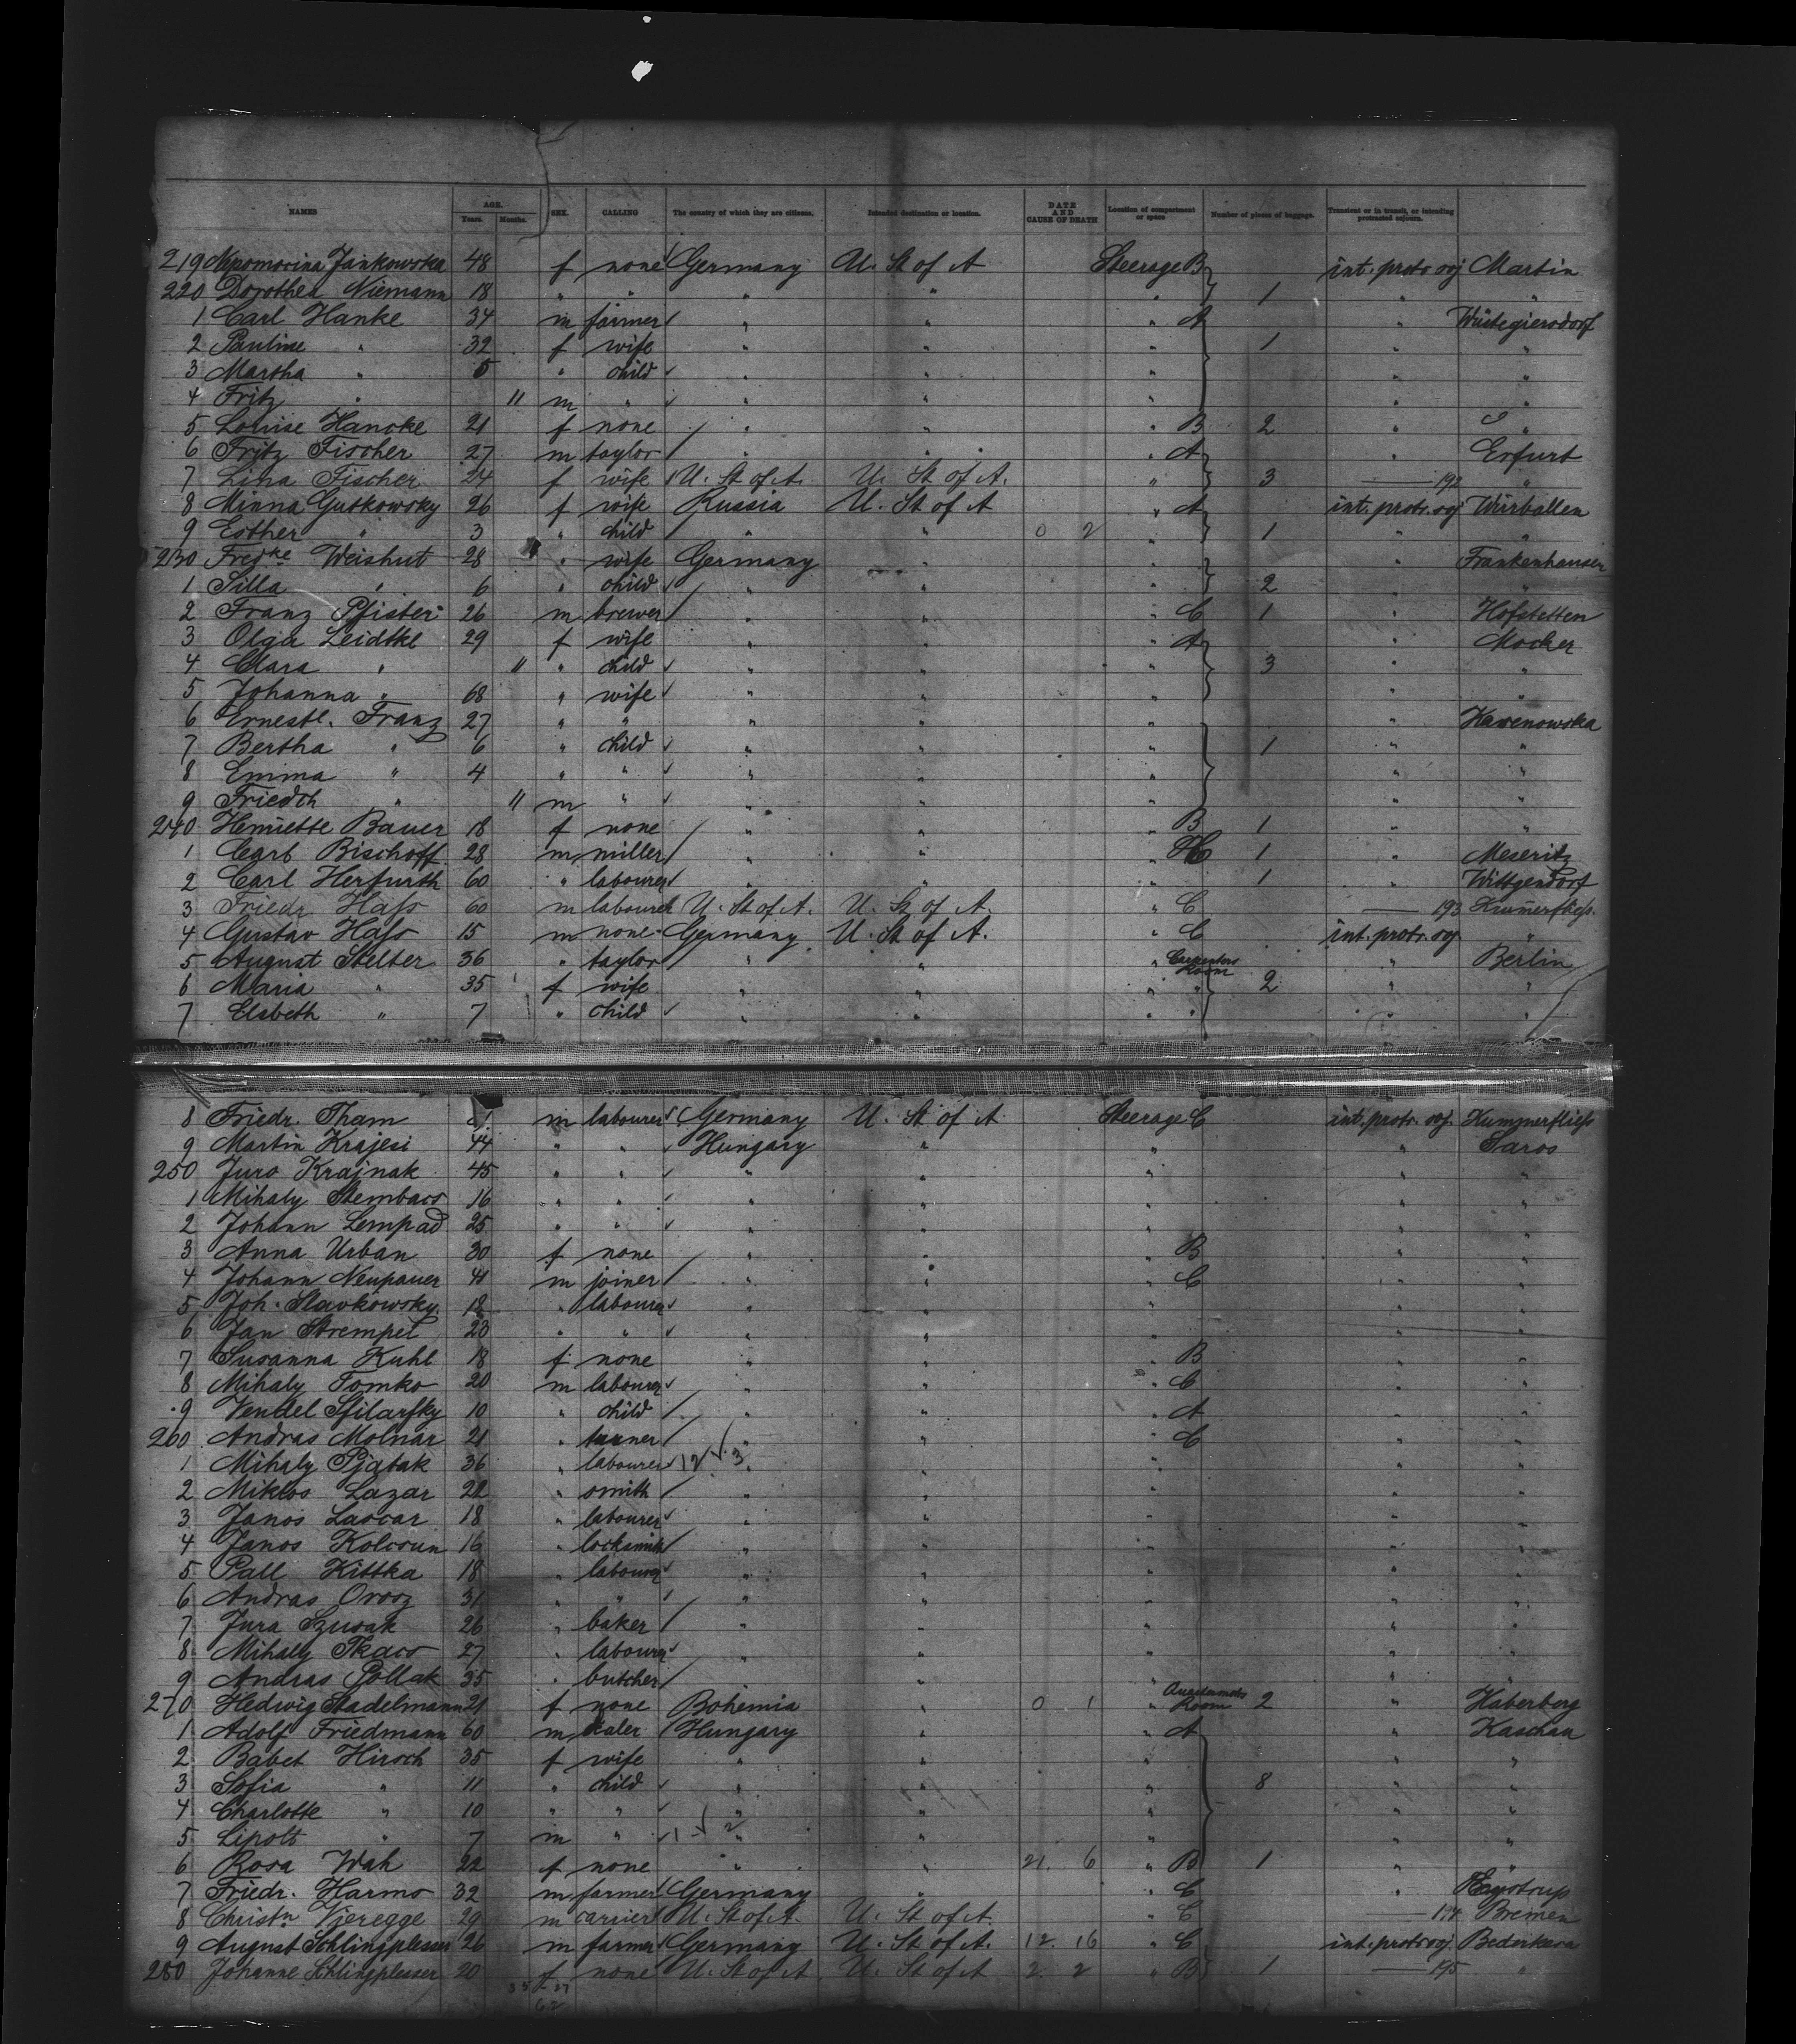 NAMES AGE. Years. Months. SEX. CALLING The country of which they are citizens. Intended destination or location. DATE AND CAUSE OF DEATH Location of compartment or space Number of pieces of baggage. Transient or in transit, or intending protracted sojourn.
219 Nepomocina Jankowska 48 f none Germany U. St of A Steerage B int. protr. soj Martin
220 Dorothea Niemann 18 " " " " " 1 " "
1 Carl Hanke 34 m farmer " " " A " Wüstegiersdorf
2 Pauline " 32 f wife " " " 1 " "
3 Martha " 5 " child " " " " "
4 Fritz " 11 m " " " " " "
5 Louise Hancke 21 f none " " " B 2 " "
6 Fritz Fischer 27 m taylor " " " A " Erfurt
7 Lina Fischer 24 f wife U. St of A. U. St of A. " 3 — 192 "
8 Minna Gutkowsky 26 f wife Russia U. St of A " A int. protr. soj Wirballen
9 Esther " 3 " child " " 0 2 " 1 " "
230 Fredke Weishut 28 " wife Germany " " " Frankenhausen
1 Silla " 6 " child " " " 2 " "
2 Franz Pfister 26 m brewer " " " C 1 " Hofstetten
3 Olga Leidtke 29 f wife " " " A " Mocker
4 Clara " 11 " child " " " 3 " "
5 Johanna " 68 " wife " " " " "
6 Ernestl. Franz 27 " " " " " " Karenowska
7 Bertha " 6 " child " " " 1 " "
8 Emma " 4 " " " " " " "
9 Friedch " 11 m " " " " " "
240 Henriette Bauer 18 f none " " " B 1 " "
1 Carl Bischoff 28 m miller " " " C 1 " Meseritz
2 Carl Herfurth 60 " labourer " " " 1 " Wittgendorf
3 Friedr. Hass 60 m labourer U. St of A. U. St of A. " C — 193 Kummerfliess
4 Gustav Hass 15 m none Germany U. St of A. " C int. protr. soj. "
5 August Stelter 36 " taylor " " " Carpenters Room " Berlin
6 Maria " 35 f wife " " " " 2 " "
7 Elsbeth " 7 " child " " " " " "
8 Friedr. Tham m labourer Germany U. St of A Steerage C int. protr. soj. Kummerfliess
9 Martin Krajesi 44 " " Hungary " " " Saros
250 Juro Krajnak 45 " " " " " " "
1 Mihaly Stembacs 16 " " " " " " "
2 Johann Lempad 25 " " " " " " "
3 Anna Urban 30 f none " " " B " "
4 Johann Neupauer 41 m joiner " " " C " "
5 Joh. Slavkowsky 18 " labourer " " " " "
6 Jan Strempel 23 " " " " " " "
7 Susanna Kuhl 18 f none " " " B " "
8 Mihaly Tomko 20 m labourer " " " C " "
9 Vendel Sfilarsky 10 " child " " " A " "
260 Andras Molnar 21 " tanner " " " C " "
1 Mihaly Pjatak 36 " labourer 12 3 " " " " "
2 Miklos Lazar 22 " smith " " " " "
3 Janos Lascar 18 " labourer " " " " "
4 Janos Kolcsun 16 " locksmith " " " " "
5 Pall Kittka 18 " labourer " " " " "
6 Andras Orosz 31 " " " " " " "
7 Jura Szusak 26 " baker " " " " "
8 Mihaly Tkacs 27 " labourer " " " " "
9 Andras Pollak 35 " butcher " " " " "
270 Hedwig Stadelmann 21 f none Bohemia " 0 1 " Room 2 " Haberberg
1 Adolf Friedmann 60 m Hungary " " A " Kaschau
2 Babet Hirsch 35 f wife " " " " "
3 Sofia " 11 " child " " " 8 " "
4 Charlotte " 10 " " " " " " "
5 Lipolt " 7 m " 1 2 " " " " "
6 Rosa Wah 22 f none " " 21. 6 " B 1 " "
7 Friedr. Harms 32 m farmer Germany " " C " Eystrup
8 Christn Vjeregge 29 m carrier U. St of A. U. St of A. " C — 194 Bremen
9 August Schlingplesser 26 m farmer Germany U. St of A. 12. 16 " C int. protr soj Bederkesa
280 Johanne Schlingplesser 20 f none U. St of A U. St of A 2. 2 " B 1 — 195 "
35 27
62